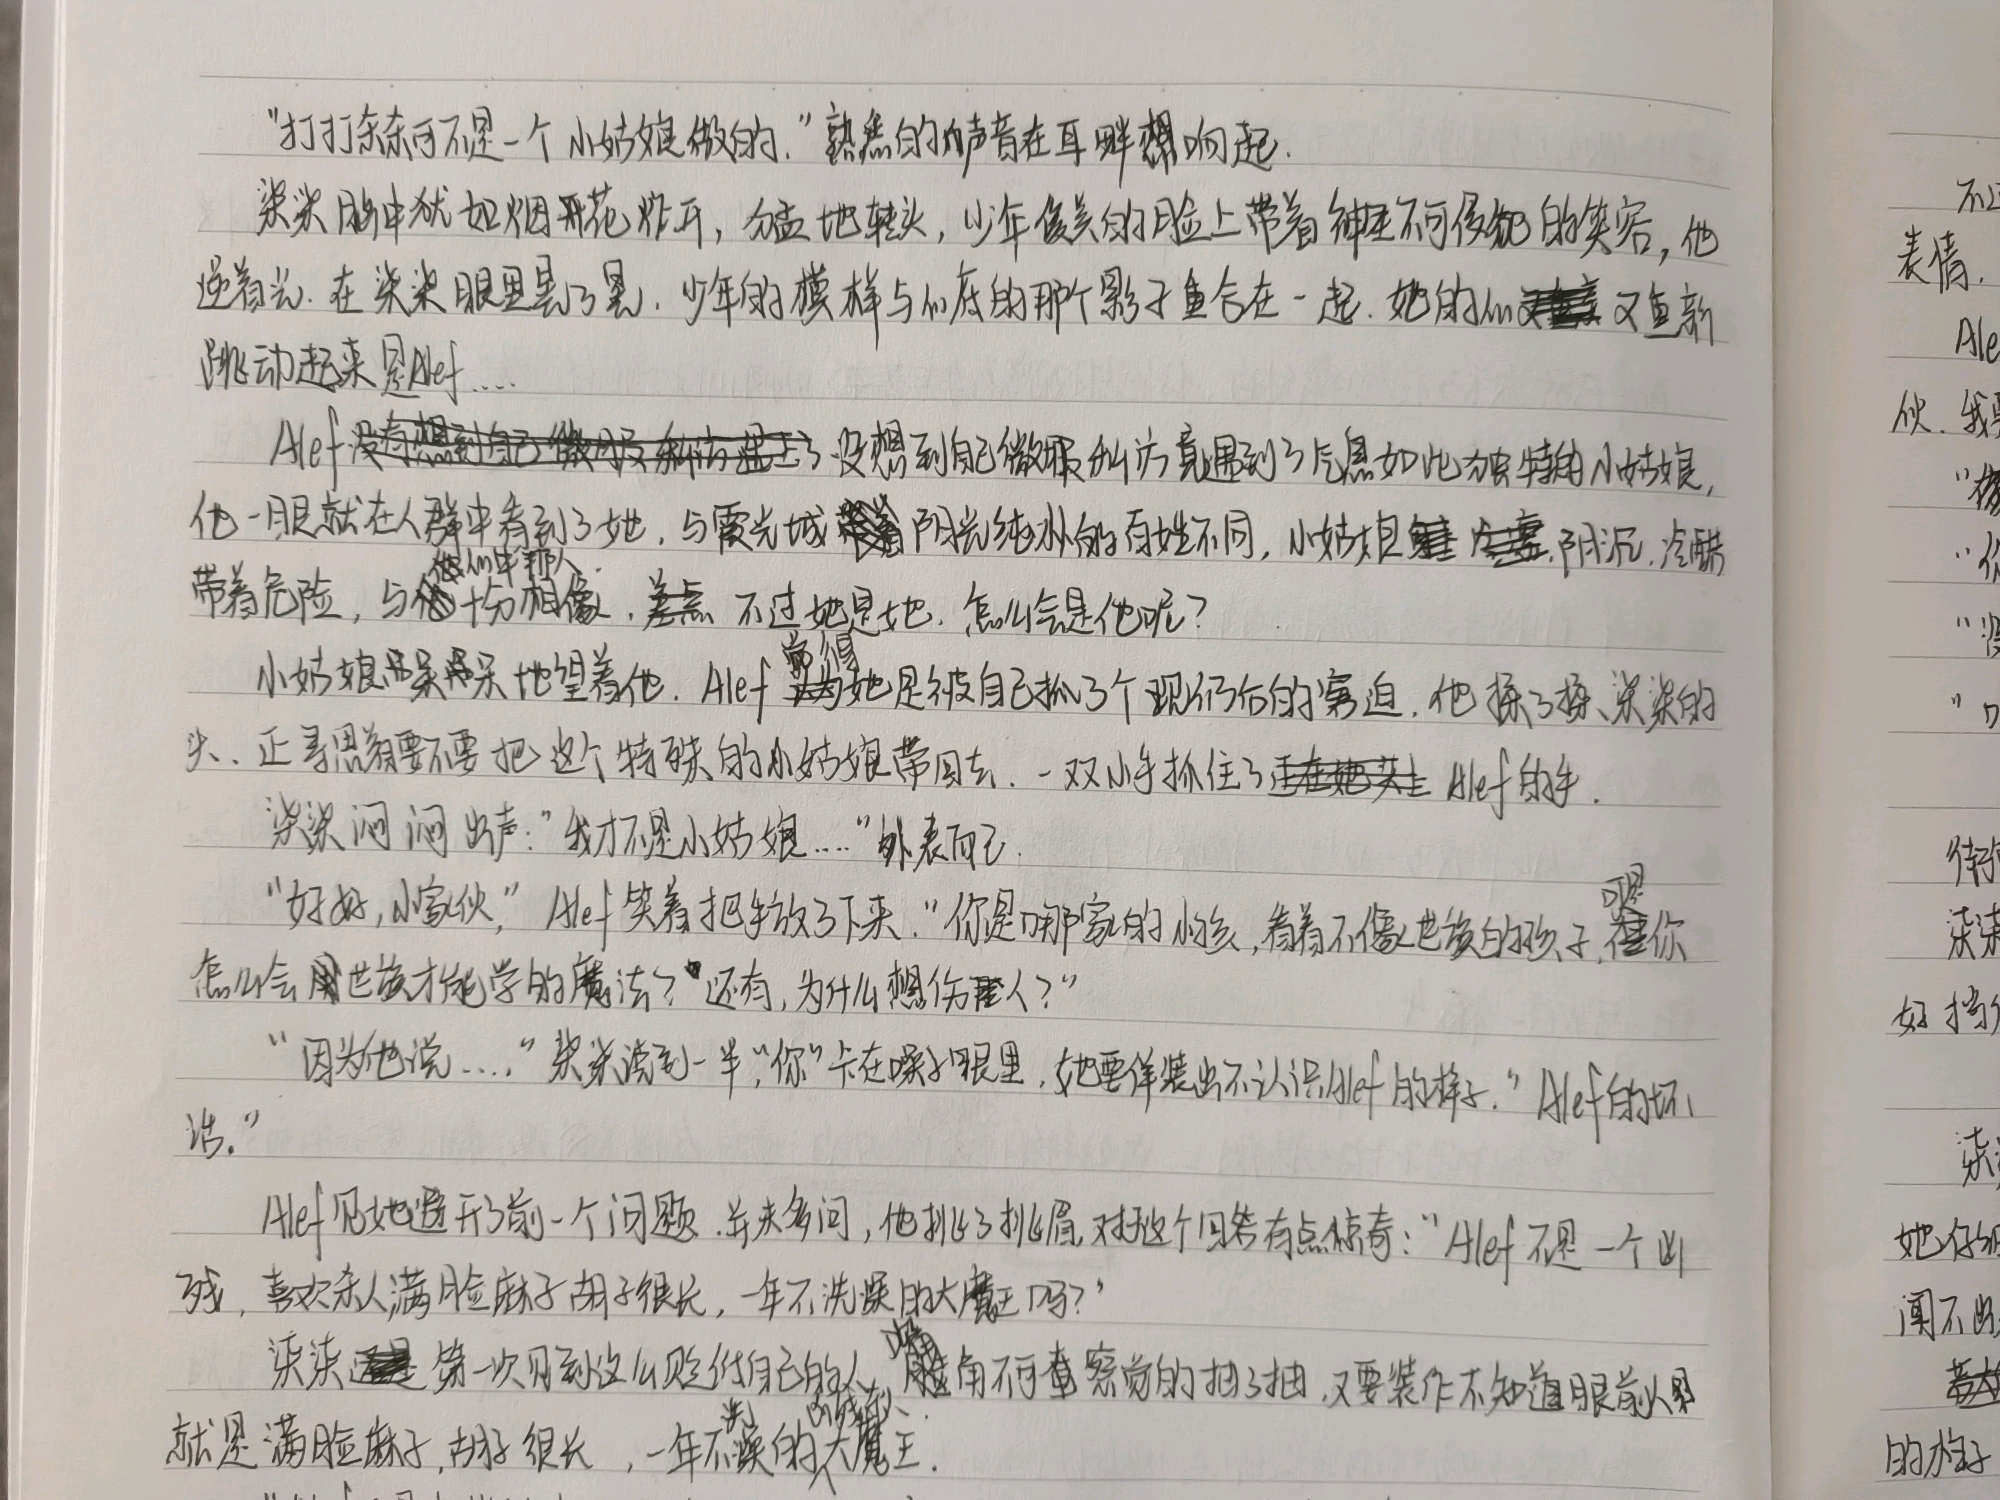 “打打杀杀可不是一个小姑娘做的.”熟悉的声音在耳畔响起.
柒柒脑中犹如烟花炸开，猛地转头，少年俊美的脸上带着神圣不可侵犯的笑容，他
逆着光.在柒柒眼里晃了晃.少年的模样与心底的那个影子重合在一起.她的心又重新
跳动起来是Alef……
Alef没有想到自己微服私访遇上了没想到自己微服私访竟遇到了气息如此独特的小姑娘，
他一眼就在人群中看到了她，与霞光城带着阳光纯朴的百姓不同，小姑娘阴沉.冷酷
他心中那人.
带着危险，与他十分相像.差点 不过她是她.怎么会是他呢？
觉得
小姑娘呆呆地望着他.Alef以为她是被自己抓了个现行后的窘迫.他揉了揉柒柒的
头、正寻思着要不要把这个特殊的小姑娘带回去.一双小手抓住了正在她头上Alef的手.
柒柒闷闷出声：“我才不是小姑娘……”外表而已.
可是
“好好，小家伙，”Alef笑着把手放了下来.“你是哪家的小孩，看着不像世族的孩子.但你
怎么会用世族才能学的魔法？“还有，为什么想伤人？”
“因为他说……”柒柒说到一半，“你”卡在嗓子眼里，她要佯装出不认识Alef的样子.“Alef的坏
话.”
Alef见她避开了前一个问题.并未多问，他挑了挑眉，对于这个回答有点惊奇：“Alef不是一个凶
残，喜欢杀人满脸麻子胡子很长，一年不洗澡的大魔王吗？”
嘴
柒柒还是第一次见到这么贬低自己的人.角不可察觉的抽了抽.又要装作不知道眼前人
洗
就是满脸麻子，胡子很长，一年不澡的大魔王.
不
表情.
Ale
伙.我
“你
“没
柒柒
好
她仔细
闻不出
的样子